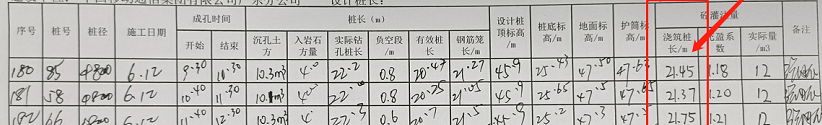 设计桩长：
序号 桩号 桩径 施工日期 成孔时间 桩长（m） 设计桩顶标高/m 桩底标高/m 地面标高/m 护筒标高/m 砼灌注量 备注
开始 结束 沉孔土方 入岩石方量 实际钻孔桩长 负空段/m 有效桩长 钢筋笼长/m 浇筑桩长/m 充盈系数 实际量m3
180 85 φ800 6.12 9.30 10.30 10.3m³ 4.0 22.2 0.8 20.47 21.27 45.9 25.43 47.50 47.65 21.45 1.18 12
181 58 φ800 6.12 10.40 11.30 10.3m³ 0.8 20.25 21.05 45.9 25.65 47.5 47.65 21.37 1.20 12
182 66 6.12 11.40 12.30 10.3m³ 22.3 0.6 20.7 21.5 45.9 25.2 47.3 21.75 1.21 12